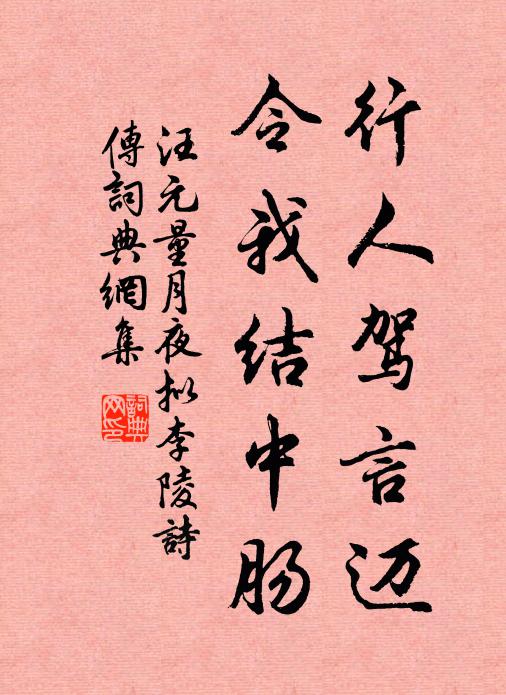 行人驾言迈
令我结中肠
汪元量月夜拟李陵詩
傳詞典網集
詞典網印